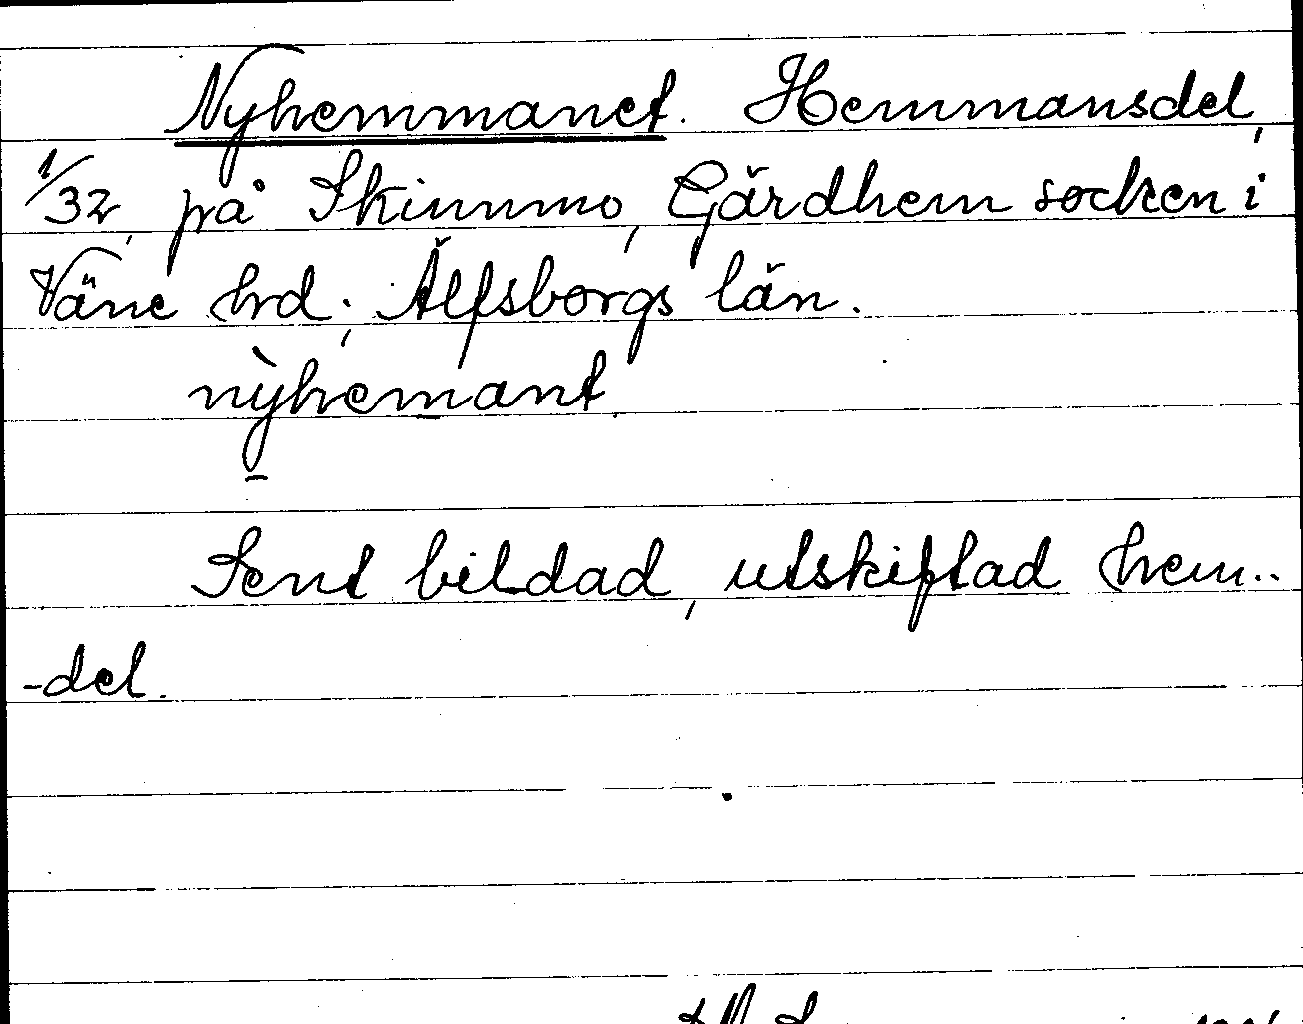 Nyhemmanet. Hemmansdel,
1/32, på Skinnmo, Gärdhem socken i
Väne hrd., Älfsborgs län.
nỳhemant.
Sent bildad, utskiftad hem..
-del.